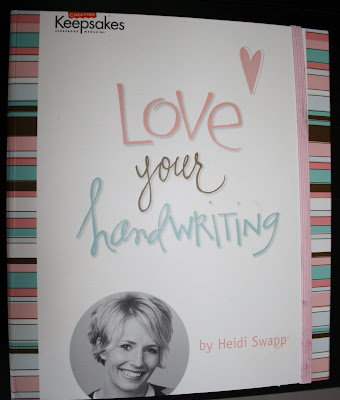 CREATING
Keepsakes
SCRAPBOOK MAGAZINE
Love
your
handwriting
by Heidi Swapp